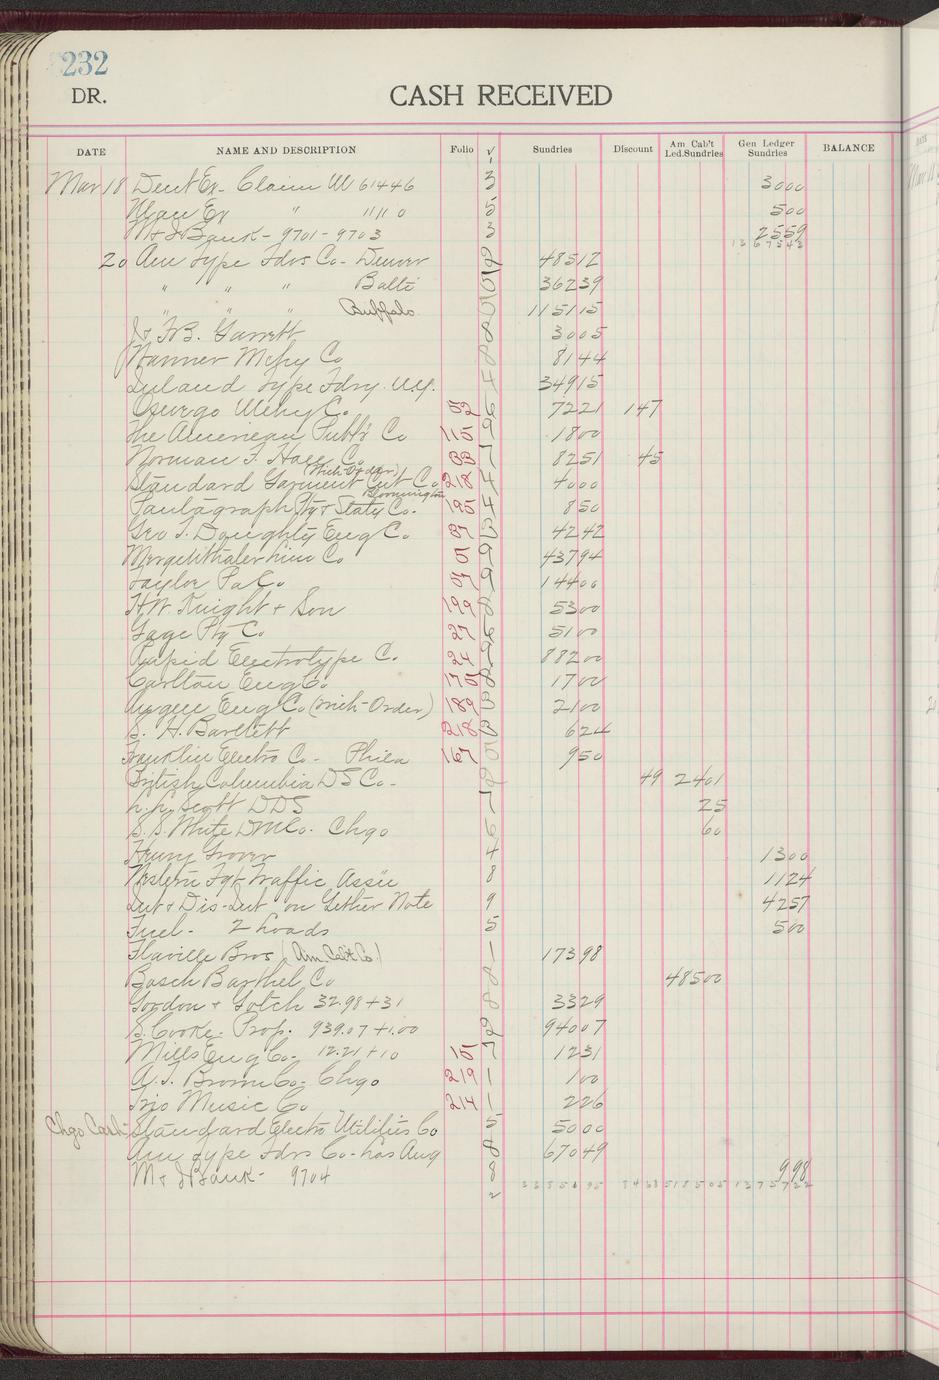 232
DR. CASH RECEIVED
DATE NAME AND DESCRIPTION Folio √ Sundries Discount Am Cab't Led.Sundries Gen Ledger Sundries BALANCE
Mar 18 Dent Ex - Claim W 61446 3 3000
Ex " " 5 500
M & I Bank - 9701 - 9703 3 2559
1367543
20 Am Type Fdrs Co - Denver 48512
" " " Balti 36239
" " " Buffalo 115115
J & F.B. Garrett 8 3005
Hanner Mchy Co 8 8144
Inland Type Fdry. N.Y. 4 34915
Oswego Mchy Co 52 6 7221 147
The American Publ'r Co 115 9 1800
Norman F. Hall Co 33 7 8251 45
Standard Garment Cut Co (Mich Order) 218 4 4000
Pantagraph Ptg & Staty Co. Bloomington 195 4 850
Geo J. Daughty Eng Co 87 4242
Mergenthaler Lino Co 9 43794
Taylor Pa Co 9 14400
H.W. Knight + Son 199 8 5300
Gage Ptg Co 27 6 5100
Rapid Electrotype Co. 24 9 88200
Carlton Eng Co. 8 1700
Eng Co (Mich-Order) 189 2100
S. H. Bartlett 218 624
Franklin Electro Co - Phila 167 950
British Columbia DS Co - 49 2401
Scott DDS 7 25
S. S. White DM Co. Chgo 6 60
Henry Grover 4 1300
Western Fgt Traffic Ass'n 8 1124
Int & Dis - Int on Gether Note 9 4257
Fuel - 2 loads 5 500
Flaville Bros (Am. Cab't Co.) 1 17398
Basch Barthel Co 8 48500
Gordon & Gotch 32.98 + 31 8 3329
S. Cooke - Prop. 939.07 + 1.00 94007
Mills Eng Co - 12.21 + 10 7 1231
A. J. Brown Co - Chgo 219 1 100
Trio Music Co 214 1 226
Chgo Cash Standard Electro Utilities Co 5 5000
Am Type Fdrs Co - Los Ang 8 67049
M & I Bank - 9704 8 998
2 1375722